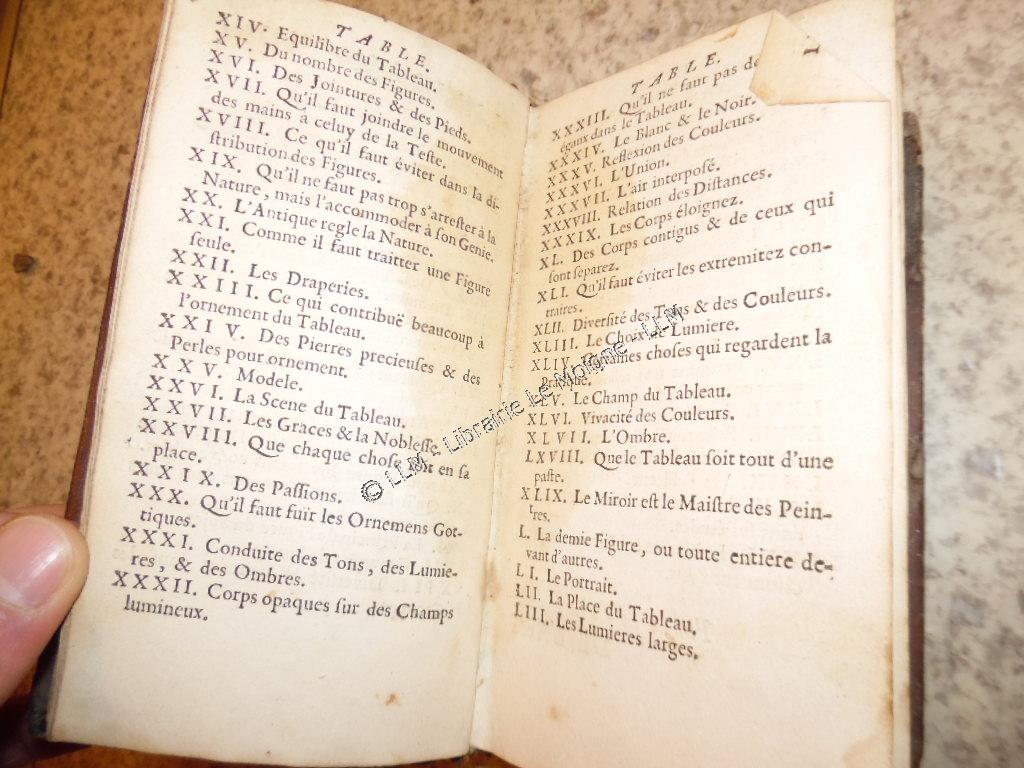 TABLE.
XIV. Equilibre du Tableau.
XV. Du nombre des Figures.
XVI. Des Jointures & des Pieds.
XVII. Qu'il faut joindre le mouvement
des mains à celuy de la Teste.
XVIII. Ce qu'il faut éviter dans la di-
stribution des Figures.
XIX. Qu'il ne faut pas trop s'arrester à la
Nature, mais l'accommoder à son Genie.
XX. L'Antique regle la Nature.
XXI. Comme il faut traitter une Figure
seule.
XXII. Les Draperies.
XXIII. Ce qui contribuë beaucoup à
l'ornement du Tableau.
XXIV. Des Pierres precieuses & des
Perles pour ornement.
XXV. Modele.
XXVI. La Scene du Tableau.
XXVII. Les Graces & la Noblesse.
XXVIII. Que chaque chose soit en sa
place.
XXIX. Des Passions.
XXX. Qu'il faut fuir les Ornemens Got-
tiques.
XXXI. Conduite des Tons, des Lumie-
res, & des Ombres.
XXXII. Corps opaques sur des Champs
lumineux.
TABLE.
XXXIII. Qu'il ne faut pas de
égaux dans le Tableau.
XXXIV. Le Blanc & le Noir.
XXXV. Reflexion des Couleurs.
XXXVI. L'Union.
XXXVII. L'air interposé.
XXXVIII. Relation des Distances.
XXXIX. Les Corps éloignez.
XL. Des Corps contigus & de ceux qui
sont separez.
XLI. Qu'il faut éviter les extremitez con-
traires.
XLII. Diversité des Tons & des Couleurs.
XLIII. Le Choix de Lumiere.
XLIV. choses qui regardent la
Pratique.
XLV. Le Champ du Tableau.
XLVI. Vivacité des Couleurs.
XLVII. L'Ombre.
LXVIII. Que le Tableau soit tout d'une
paste.
XLIX. Le Miroir est le Maistre des Pein-
tres.
L. La demie Figure, ou toute entiere de-
vant d'autres.
LI. Le Portrait.
LII. La Place du Tableau.
LIII. Les Lumieres larges.
© LLM - Librairie Le Moigne - LLM